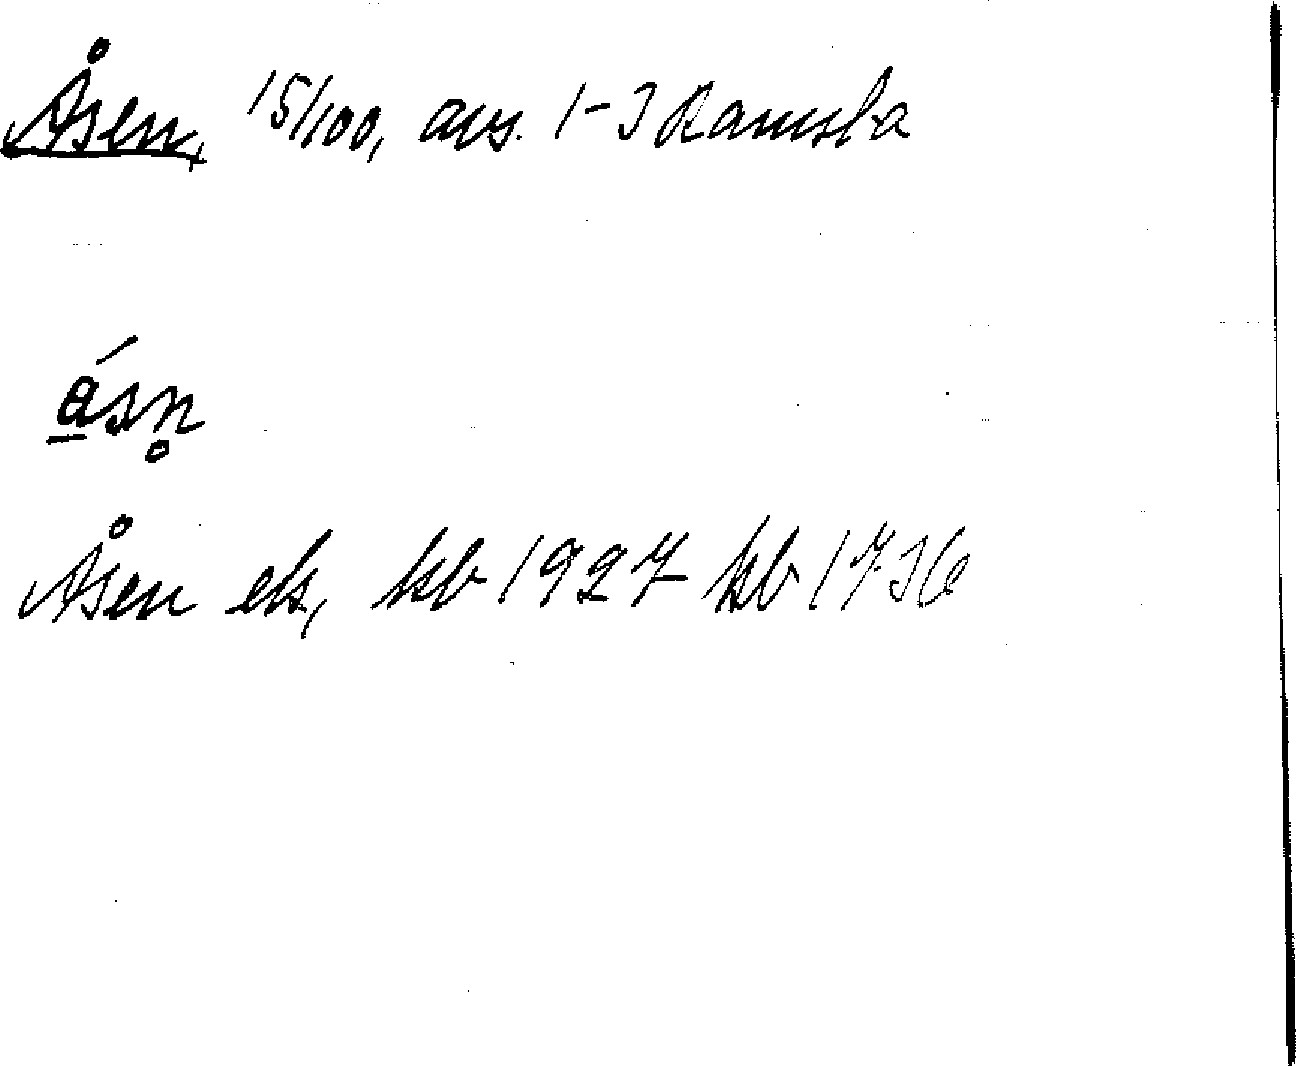 Åsen, 15/100, avs. 1-3 Ramsta
ásn̥
Åsen ek, kb 1927 kb 1736